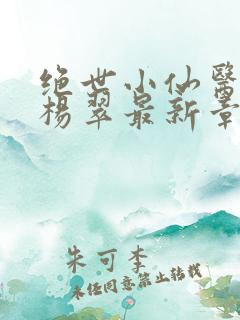 绝世小仙醫
楊翠最新章
朱可李
未经同意禁止转载